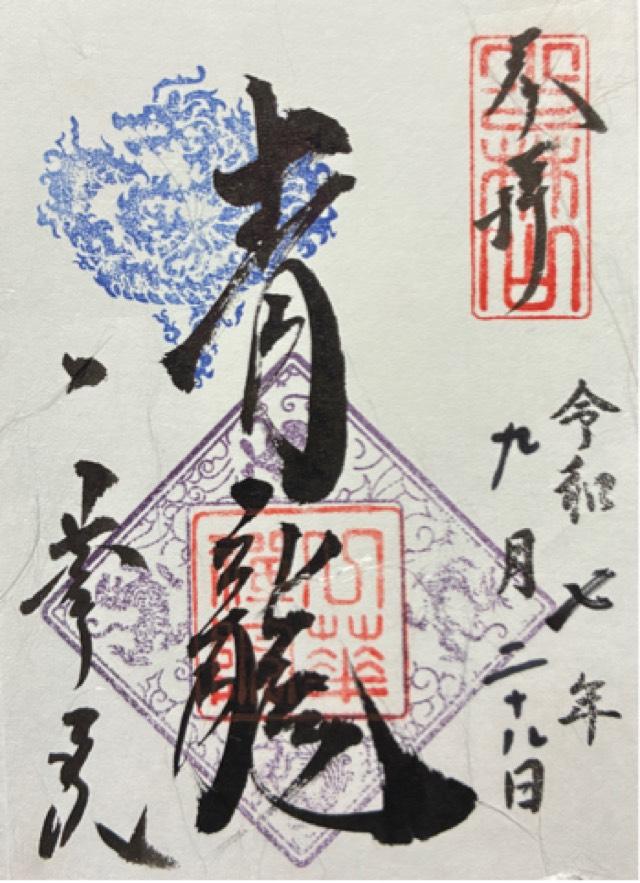 奉拝
令和七年
九月二十八日
青龍
一華院